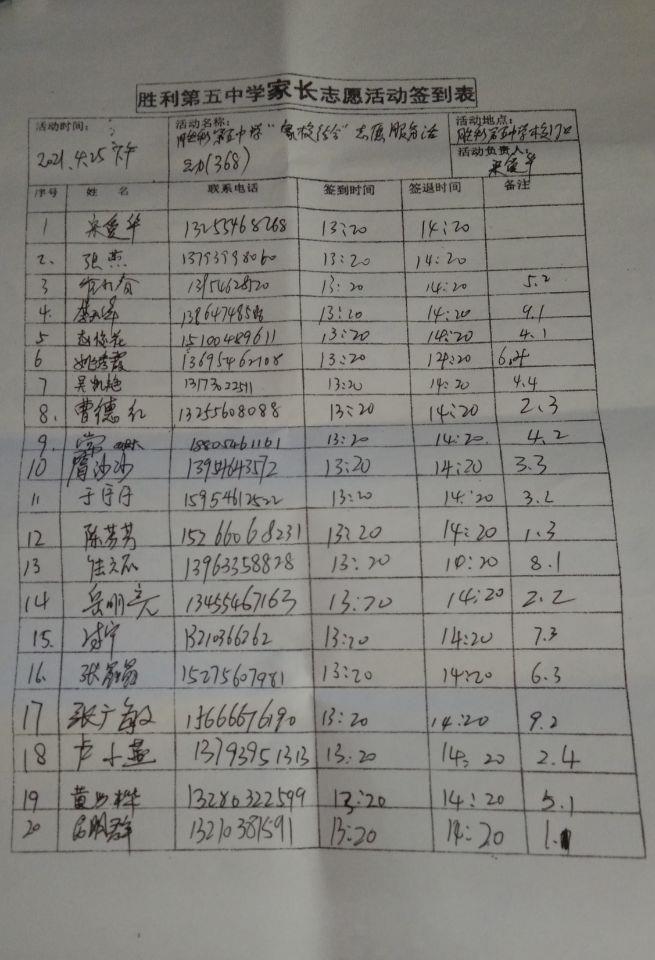 胜利第五中学家长志愿活动签到表
活动时间： 2021.4.25 下午
活动名称： 胜利第五中学"家校结合"志愿服务活动(368)
活动地点： 胜利第五中学校门口
活动负责人：
序号 姓 名 联系电话 签到时间 签退时间 备注
1 13255468268 13:20 14:20
2. 张燕 13793998060 13:20 14:20
3 13954628720 13:20 14:20 5.2
4. 13:20 14:20 9.1
5 15100489611 13:20 14:20 4.1
6 13695462108 13:20 14:20 6.4
7 吴凯艳 13173022511 13:20 14:20 4.4
8. 曹德红 13255608088 13:20 14:20 2.3
9. 18805461161 13:20 14:20. 4.2
10 贾沙沙 13954643572 13:20 14:20 3.3
11 于丹丹 15954612522 13:20 14:20 3.2
12 陈芳芳 15266068231 13:20 14:20 1.3
13 13963358828 13:20 14:20 8.1
14 岳明亮 13455467163 13:20 14:20 2.2
15. 13210366262 13:20 14:20 7.3
16. 15275607981 13:20 14:20 6.3
17 张广敏 15666676190 13:20 14:20 9.2
18 卢小燕 13793951313 13:20 14:20 2.4
19 13280322599 13:20 14:20 5.1
20 13210387591 13:20 14:20 1.1